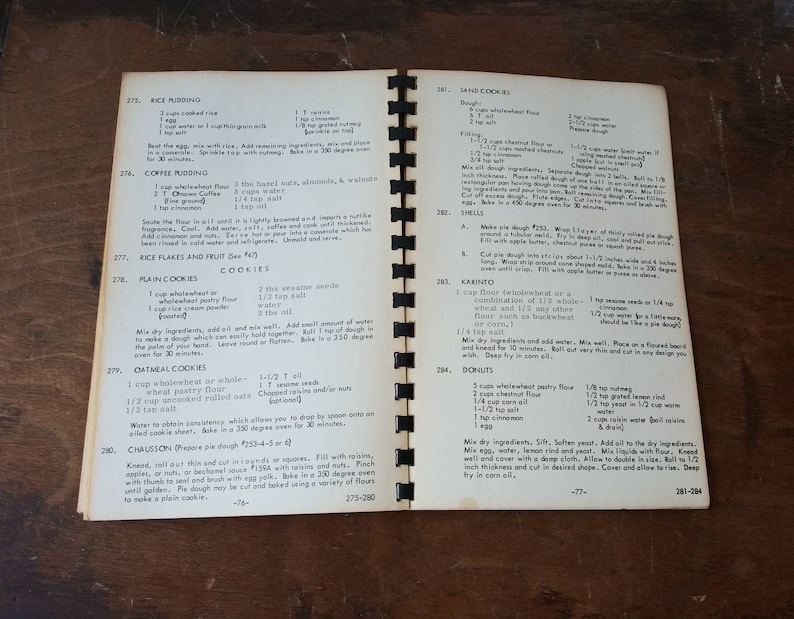 275. RICE PUDDING
3 cups cooked rice
1 egg
1 cup water or 1 cup thin grain milk
1 tsp salt
1 T raisins
1 tsp cinnamon
1/8 tsp grated nutmeg
(sprinkle on top)
Beat the egg, mix with rice. Add remaining ingredients, mix and place
in a casserole. Sprinkle top with nutmeg. Bake in a 350 degree oven
for 30 minutes.
276. COFFEE PUDDING
1 cup wholewheat flour
2 T Ohsawa Coffee
(fine ground)
1 tsp cinnamon
3 tbs hazel nuts, almonds, & walnuts
3 cups water
1/4 tsp salt
1 tsp oil
Saute the flour in oil until it is lightly browned and imparts a nutlike
fragrance. Cool. Add water, salt, coffee and cook until thickened.
Add cinnamon and nuts. Serve hot or pour into a casserole which has
been rinsed in cold water and refrigerate. Unmold and serve.
277. RICE FLAKES AND FRUIT (See #47)
COOKIES
278. PLAIN COOKIES
1 cup wholewheat or
wholewheat pastry flour
1 cup rice cream powder
(roasted)
2 tbs sesame seeds
1/2 tsp salt
water
2 tbs oil
Mix dry ingredients, add oil and mix well. Add small amount of water
to make a dough which can easily hold together. Roll 1 tsp of dough in
the palm of your hand. Leave round or flatten. Bake in a 350 degree
oven for 30 minutes.
279. OATMEAL COOKIES
1 cup wholewheat or whole-
wheat pastry flour
1/2 cup uncooked rolled oats
1/2 tsp salt
1-1/2 T oil
1 T sesame seeds
Chopped raisins and/or nuts
(optional)
Water to obtain consistency which allows you to drop by spoon onto an
oiled cookie sheet. Bake in a 350 degree oven for 30 minutes.
280. CHAUSSON (Prepare pie dough #253-4-5 or 6)
Knead, roll out thin and cut in rounds or squares. Fill with raisins,
apples, or nuts, or bechamel sauce #159A with raisins and nuts. Pinch
with thumb to seal and brush with egg yolk. Bake in a 350 degree oven
until golden. Pie dough may be cut and baked using a variety of flours
to make a plain cookie.
-76-
275-280
281. SAND COOKIES
Dough:
6 cups wholewheat flour
6 T oil
2 tsp salt
2 tsp cinnamon
2-1/2 cups water
Prepare dough
Filling:
1-1/2 cups chestnut flour or
1-1/2 cups mashed chestnuts
1/2 tsp cinnamon
3/4 tsp salt
1-1/2 cups water (omit water if
using mashed chestnuts)
1 apple (cut in small pcs)
Chopped walnuts
Mix all dough ingredients. Separate dough into 2 balls. Roll to 1/8
inch thickness. Place rolled dough of one ball in an oiled square or
rectangular pan having dough come up the sides of the pan. Mix fill-
ing ingredients and pour into pan. Roll remaining dough. Cover filling.
Cut off excess dough. Flute edges. Cut into squares and brush with
egg. Bake in a 450 degree oven for 30 minutes.
282. SHELLS
A. Make pie dough #253. Wrap 1 layer of thinly rolled pie dough
around a tubular mold. Fry in deep oil, cool and pull out stick.
Fill with apple butter, chestnut puree or squash puree.
B. Cut pie dough into strips about 1-1/2 inches wide and 4 inches
long. Wrap strip around cone shaped mold. Bake in a 350 degree
oven until crisp. Fill with apple butter or puree as above.
283. KARINTO
1 cup flour (wholewheat or a
combination of 1/2 whole-
wheat and 1/2 any other
flour such as buckwheat
or corn,)
1/4 tsp salt
1 tsp sesame seeds or 1/4 tsp
cinnamon
1/2 cup water (or a little more,
should be like a pie dough)
Mix dry ingredients and add water. Mix well. Place on a floured board
and knead for 10 minutes. Roll out very thin and cut in any design you
wish. Deep fry in corn oil.
284. DONUTS
5 cups wholewheat pastry flour
2 cups chestnut flour
1/4 cup corn oil
1-1/2 tsp salt
1 tsp cinnamon
1 egg
1/8 tsp nutmeg
1/2 tsp grated lemon rind
1/2 tsp yeast in 1/2 cup warm
water
2 cups raisin water (boil raisins
& drain)
Mix dry ingredients. Sift. Soften yeast. Add oil to the dry ingredients.
Mix egg, water, lemon rind and yeast. Mix liquids with flour. Knead
well and cover with a damp cloth. Allow to double in size. Roll to 1/2
inch thickness and cut in desired shape. Cover and allow to rise. Deep
fry in corn oil.
-77-
281-284